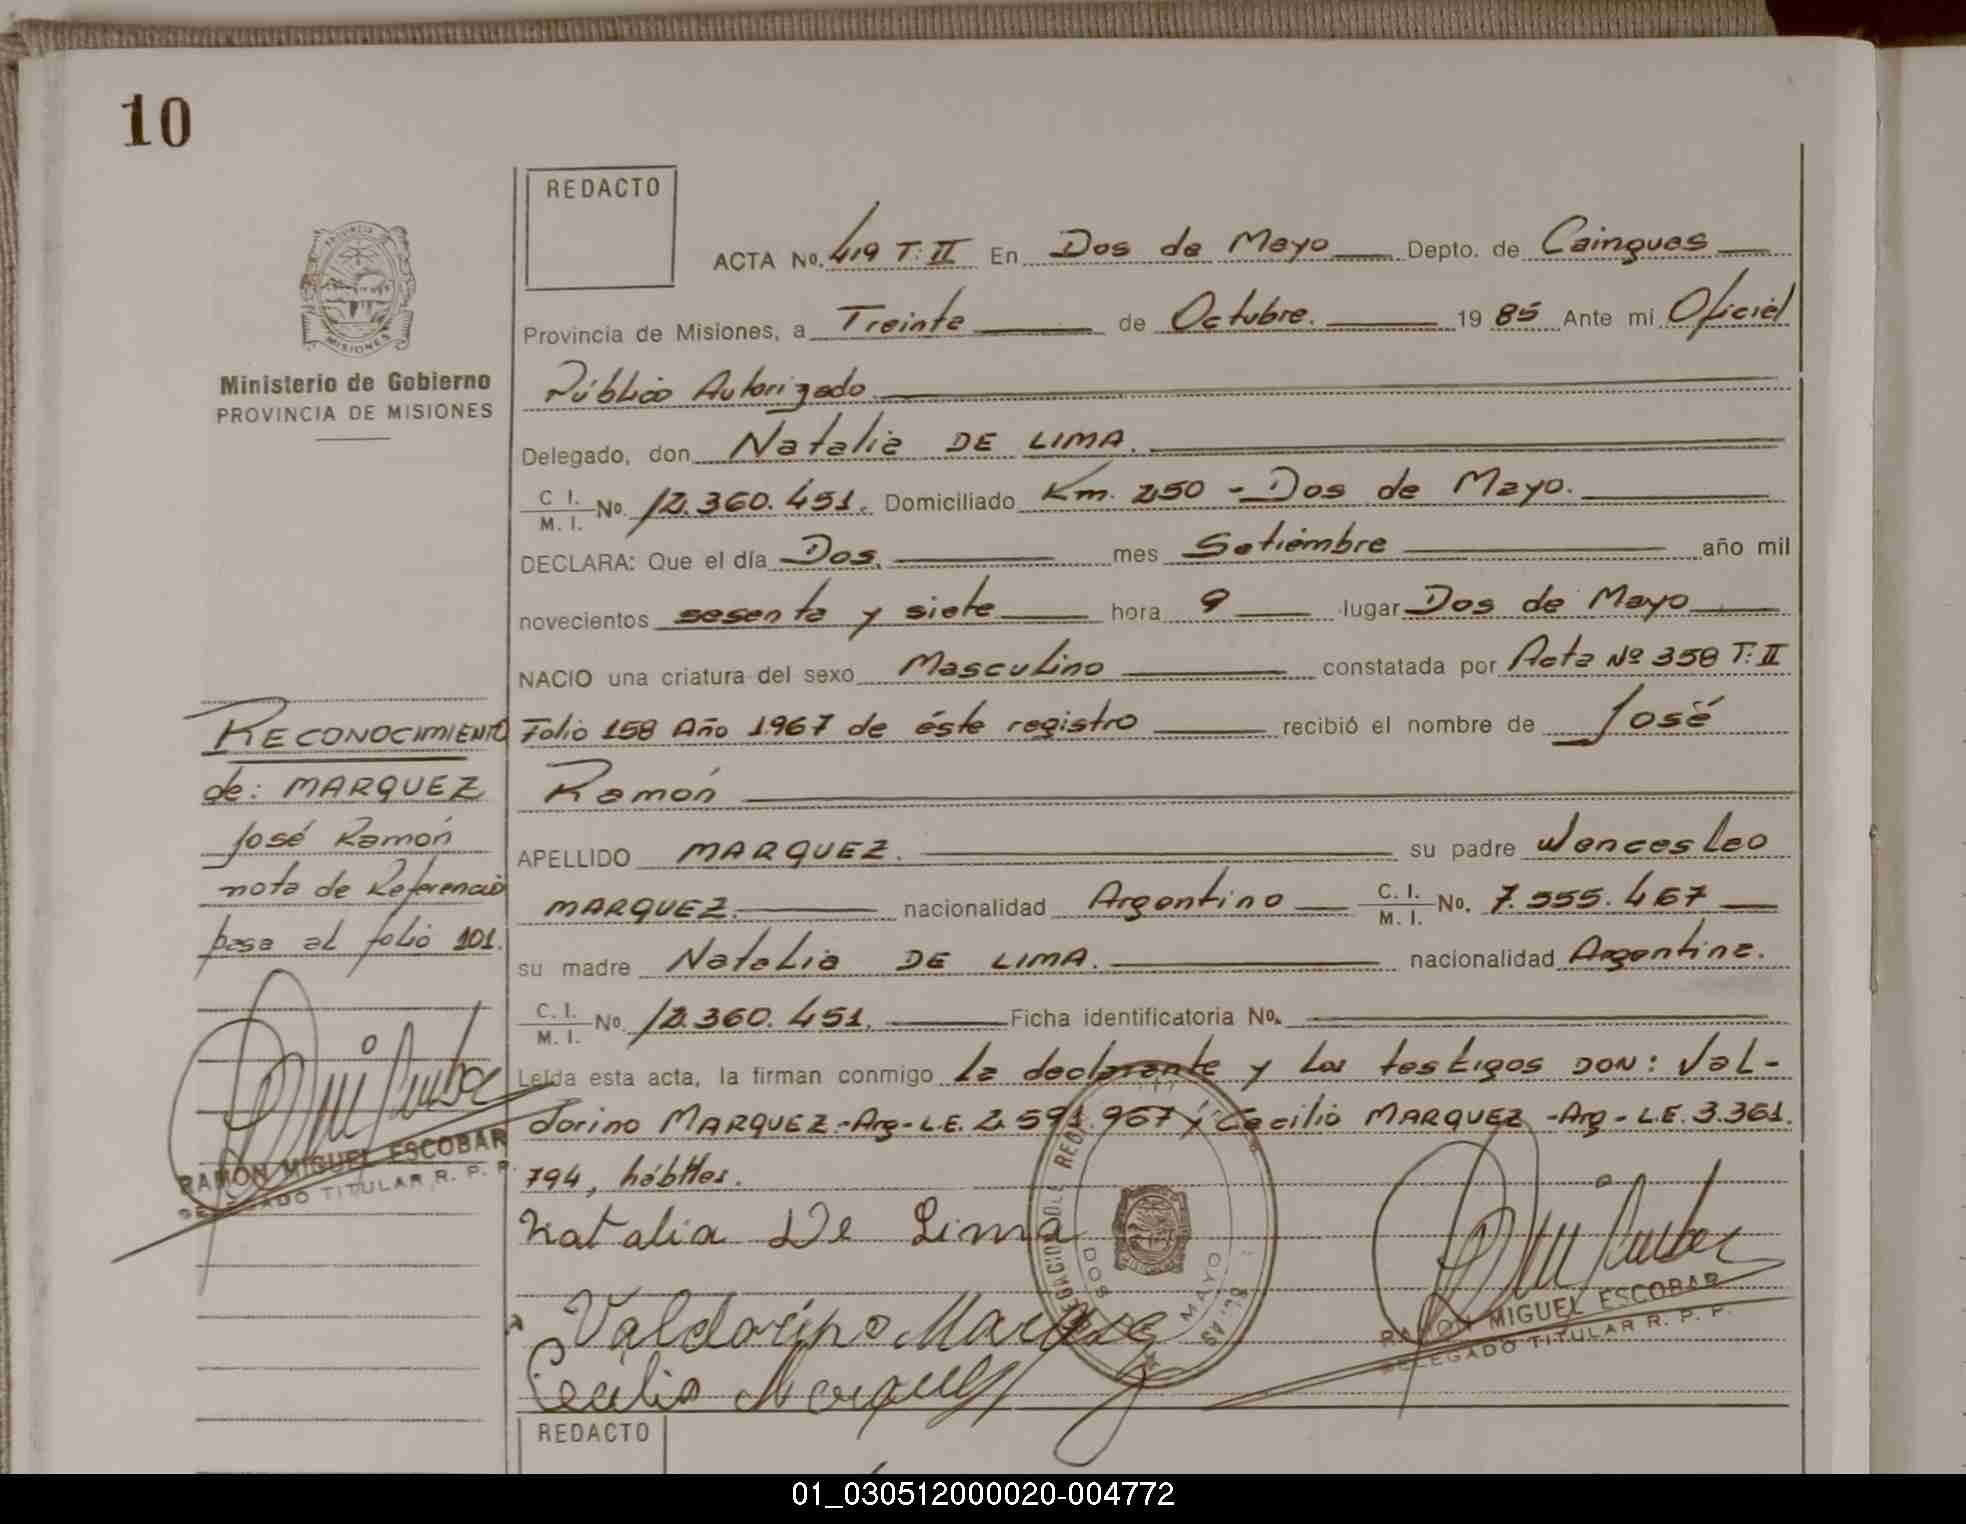 10
REDACTO
ACTA No. 419 T: II En Dos de Mayo Depto. de Cainguas
Provincia de Misiones, a Treinta de Octubre. 19 85 Ante mi Oficial
Público Autorizado
Delegado, don Natalia DE LIMA.
C I. / M. I. No. 12.360.451. Domiciliado Km. 250 - Dos de Mayo.
DECLARA: Que el día Dos. mes Setiembre año mil
novecientos sesenta y siete hora 9 lugar Dos de Mayo
NACIO una criatura del sexo Masculino constatada por Acta Nº 358 T: II
Folio 158 Año 1.967 de éste registro recibió el nombre de José
Ramón
APELLIDO MARQUEZ. su padre Wencesleo
MARQUEZ. nacionalidad Argentino C. I. / M. I. No. 7.555.467
su madre Natalia DE LIMA. nacionalidad Argentina.
C. I. / M. I. No. 12.360.451. Ficha identificatoria No.
Leída esta acta, la firman conmigo la declarante y los testigos DON: Val-
dorino MARQUEZ.-Arg-L.E. 2.591.967 y Cecilio MARQUEZ -Arg- L.E. 3.361.
794, hábiles.
Natalia De Lima
Valdorino Marquez
Cecilio Marquez
RAMON MIGUEL ESCOBAR
DELEGADO TITULAR R. P. P.
DOS MAYO
PROVINCIA
MISIONES
Ministerio de Gobierno
PROVINCIA DE MISIONES
RECONOCIMIENTO
de: MARQUEZ
José Ramón
nota de Referencia
pasa al folio 101.
RAMON MIGUEL ESCOBAR
DELEGADO TITULAR R. P. P.
REDACTO
01_030512000020-004772